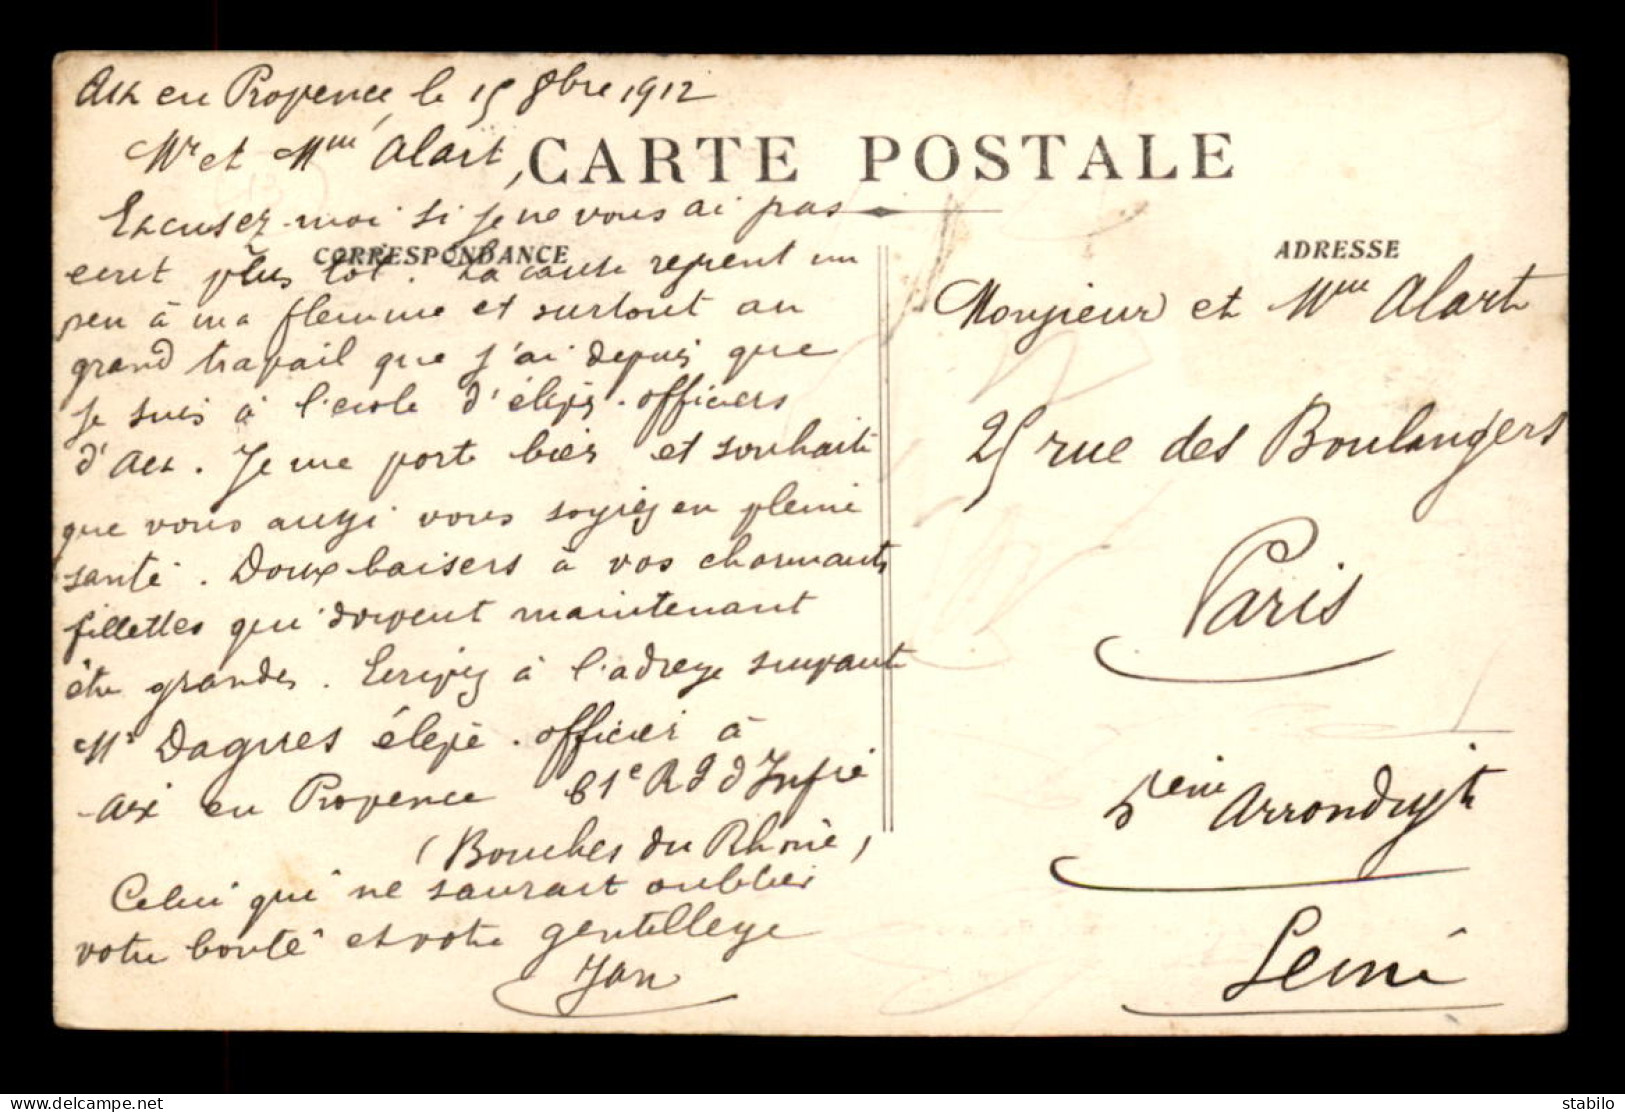 Aix en Provence, le 15 8bre 1912
Mr et Mme Alart,
CARTE POSTALE
Excusez-moi si je ne vous ai pas
CORRESPONDANCE
ecrit plus tôt. La cause revient un
peu à ma flemme et surtout au
grand travail que j'ai depuis que
je suis à l'ecole d'élèves-officiers
d'Aix. Je me porte bien et souhaite
que vous aussi vous soyiez en pleine
santé. Doux baisers à vos charmantes
fillettes qui doivent maintenant
être grandes. Ecrivez à l'adresse suivante
Mr Dagues élève-officier à
Aix en Provence 61e Rgt d'Infie
(Bouches du Rhône)
Celui qui ne saurait oublier
votre bonté et votre gentillesse
Jan
ADRESSE
Monsieur et Mme Alart
25 rue des Boulangers
Paris
5eme Arrondisst
Seine
stabilo